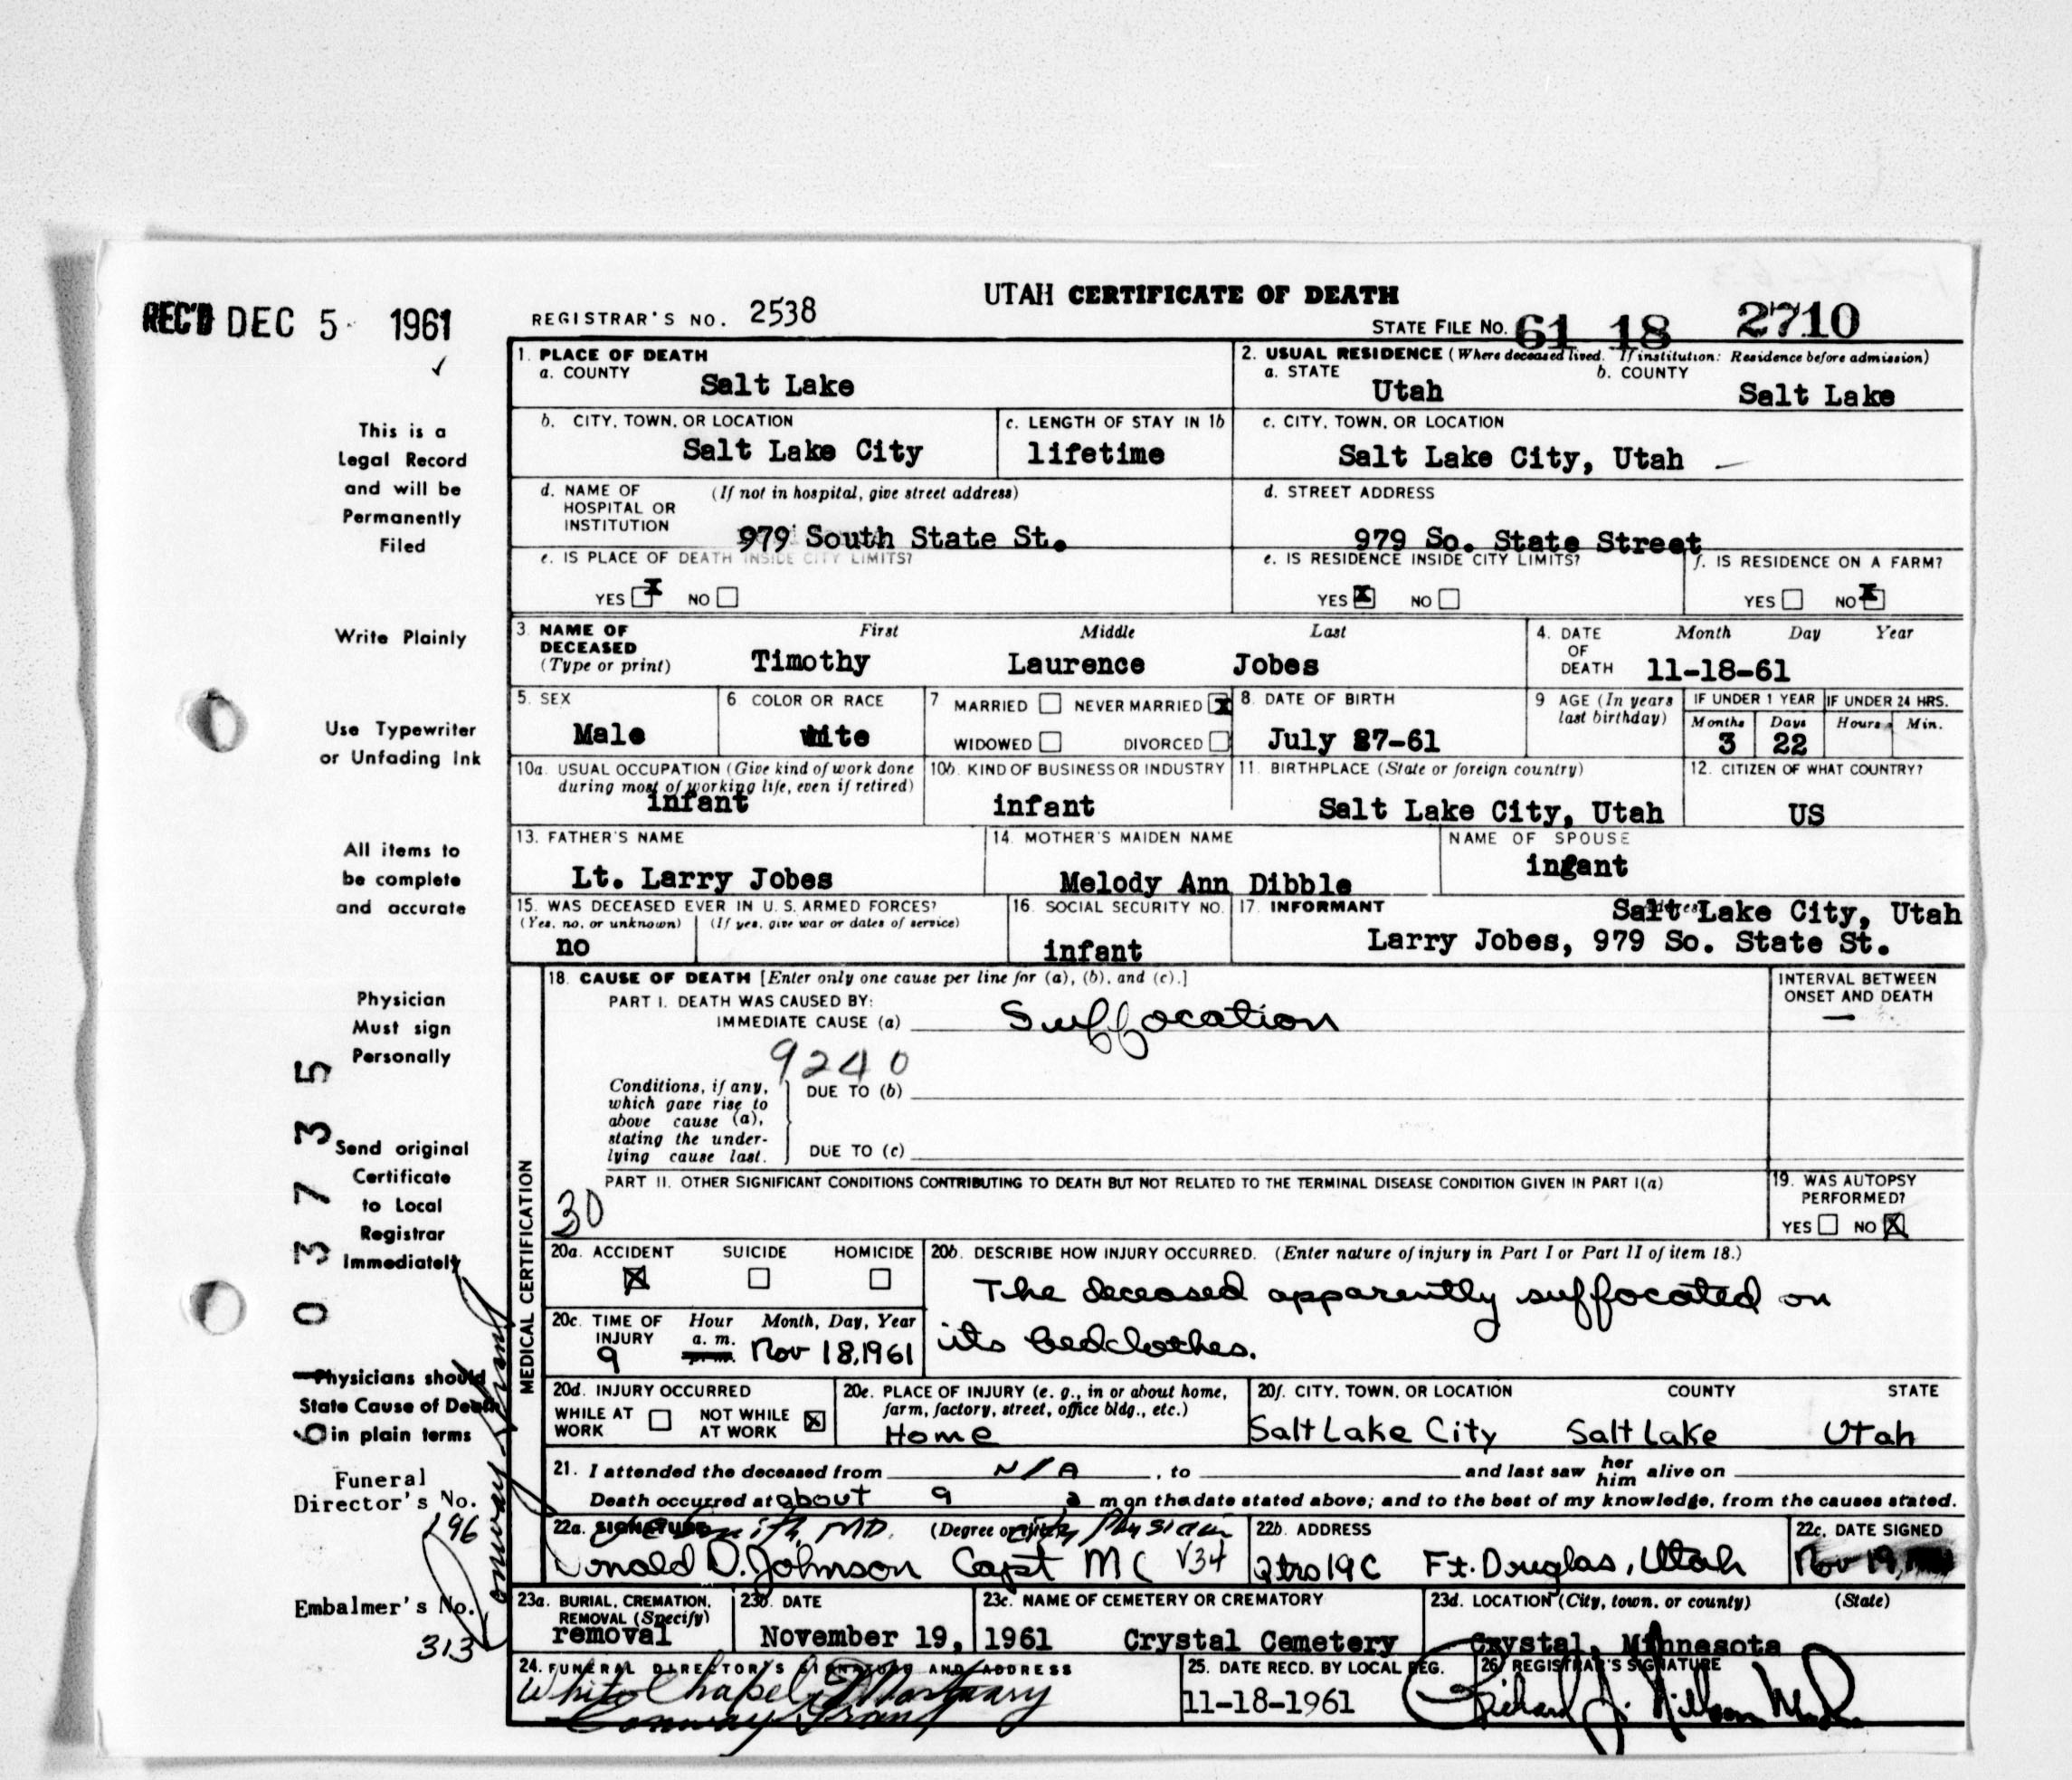 UTAH CERTIFICATE OF DEATH
REC'D DEC 5 1961
REGISTRAR'S NO. 2538
STATE FILE NO. 61 18 2710
1. PLACE OF DEATH
a. COUNTY Salt Lake
2. USUAL RESIDENCE (Where deceased lived. If institution: Residence before admission)
a. STATE Utah b. COUNTY Salt Lake
b. CITY, TOWN, OR LOCATION Salt Lake City
c. LENGTH OF STAY IN 1b lifetime
c. CITY, TOWN, OR LOCATION Salt Lake City, Utah
d. NAME OF HOSPITAL OR INSTITUTION (If not in hospital, give street address)
979 South State St.
d. STREET ADDRESS
979 So. State Street
e. IS PLACE OF DEATH INSIDE CITY LIMITS?
YES X NO
e. IS RESIDENCE INSIDE CITY LIMITS?
YES X NO
f. IS RESIDENCE ON A FARM?
YES NO X
3. NAME OF DECEASED (Type or print)
First Middle Last
Timothy Laurence Jobes
4. DATE OF DEATH Month Day Year
11-18-61
5. SEX Male
6. COLOR OR RACE
7 MARRIED NEVER MARRIED X
WIDOWED DIVORCED
8. DATE OF BIRTH July 27-61
9 AGE (In years last birthday)
IF UNDER 1 YEAR Months 3 Days 22
IF UNDER 24 HRS. Hours Min.
10a. USUAL OCCUPATION (Give kind of work done during most of working life, even if retired)
infant
10b. KIND OF BUSINESS OR INDUSTRY
infant
11. BIRTHPLACE (State or foreign country)
Salt Lake City, Utah
12. CITIZEN OF WHAT COUNTRY?
US
13. FATHER'S NAME
Lt. Larry Jobes
14. MOTHER'S MAIDEN NAME
Melody Ann Dibble
NAME OF SPOUSE
infant
15. WAS DECEASED EVER IN U. S. ARMED FORCES?
(Yes, no, or unknown) (If yes, give war or dates of service)
no
16. SOCIAL SECURITY NO.
infant
17. INFORMANT Address
Salt Lake City, Utah
Larry Jobes, 979 So. State St.
MEDICAL CERTIFICATION
18. CAUSE OF DEATH [Enter only one cause per line for (a), (b), and (c).]
PART I. DEATH WAS CAUSED BY:
IMMEDIATE CAUSE (a) Suffocation
INTERVAL BETWEEN ONSET AND DEATH
—
9240
Conditions, if any, which gave rise to above cause (a), stating the underlying cause last.
DUE TO (b)
DUE TO (c)
PART II. OTHER SIGNIFICANT CONDITIONS CONTRIBUTING TO DEATH BUT NOT RELATED TO THE TERMINAL DISEASE CONDITION GIVEN IN PART I(a)
30
19. WAS AUTOPSY PERFORMED?
YES NO X
20a. ACCIDENT X SUICIDE HOMICIDE
20b. DESCRIBE HOW INJURY OCCURRED. (Enter nature of injury in Part I or Part II of item 18.)
The deceased apparently suffocated on
its bedclothes.
20c. TIME OF INJURY Hour Month, Day, Year
9 a. m. p. m. Nov 18, 1961
20d. INJURY OCCURRED
WHILE AT WORK NOT WHILE AT WORK X
20e. PLACE OF INJURY (e. g., in or about home, farm, factory, street, office bldg., etc.)
Home
20f. CITY, TOWN, OR LOCATION COUNTY STATE
Salt Lake City Salt Lake Utah
21. I attended the deceased from N/A , to and last saw her him alive on
Death occurred at about 9 a m on the date stated above; and to the best of my knowledge, from the causes stated.
22a. SIGNATURE (Degree or title)
Smith, MD. City Physician
Donald D. Johnson Capt MC V34
22b. ADDRESS
Qtrs 19C Ft. Douglas, Utah
22c. DATE SIGNED
Nov 19,
23a. BURIAL, CREMATION, REMOVAL (Specify)
removal
23b. DATE
November 19, 1961
23c. NAME OF CEMETERY OR CREMATORY
Crystal Cemetery
23d. LOCATION (City, town, or county) (State)
Crystal, Minnesota
24. FUNERAL DIRECTOR'S SIGNATURE AND ADDRESS
White Chapel Mortuary
Conway Grant
25. DATE RECD. BY LOCAL REG.
11-18-1961
26. REGISTRAR'S SIGNATURE
This is a
Legal Record
and will be
Permanently
Filed
Write Plainly
Use Typewriter
or Unfading Ink
All items to
be complete
and accurate
Physician
Must sign
Personally
Send original
Certificate
to Local
Registrar
Immediately
Physicians should
State Cause of Death
in plain terms
Funeral
Director's No.
196
Embalmer's No.
313
Conway Grant